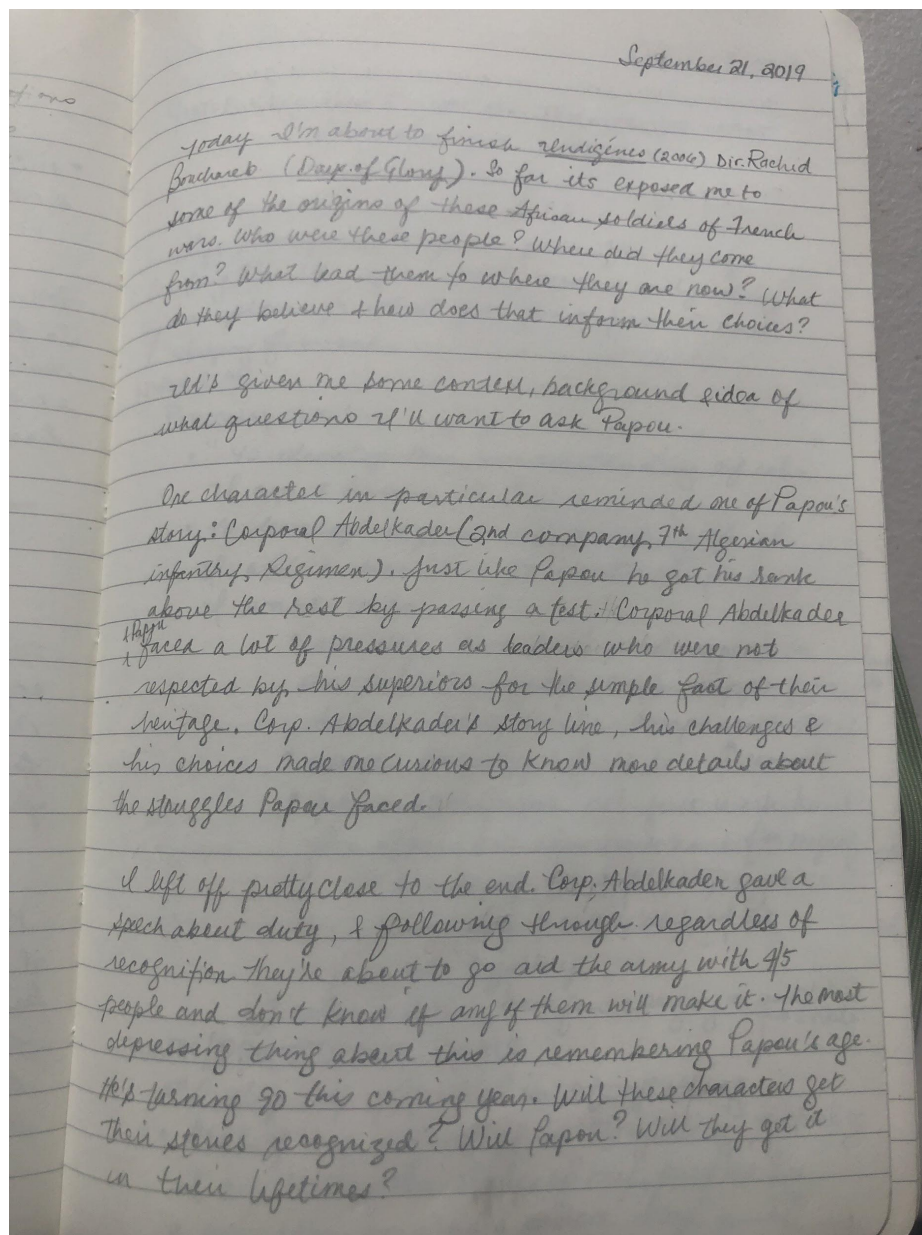 September 21, 2019
Today I'm about to finish Indigénes (2006) Dir. Rachid
Bouchareb (Days of Glory). So far its exposed me to
some of the origins of these African soldiers of French
wars. Who were these people? Where did they come
from? What lead them to where they are now? What
do they believe & how does that inform their choices?
It's given me some context, background & idea of
what questions I'll want to ask Papou.
One character in particular reminded me of Papou's
story: Corporal Abdelkader (2nd company, 7th Algerian
infantry, Regimen). Just like Papou he got his rank
above the rest by passing a test. Corporal Abdelkader
+ Papou
faced a lot of pressures as leaders who were not
respected by his superiors for the simple fact of their
heritage. Corp. Abdelkader's story line, his challenges &
his choices made me curious to know more details about
the struggles Papou faced.
I left off pretty close to the end. Corp. Abdelkader gave a
spech about duty, & following through regardless of
recognition they're about to go aid the army with 4/5
people and don't know if any of them will make it. The most
depressing thing about this is remembering Papou's age.
He's turning 90 this coming year. Will these characters get
their stories recognized? Will Papou? Will they get it
in their lifetimes?